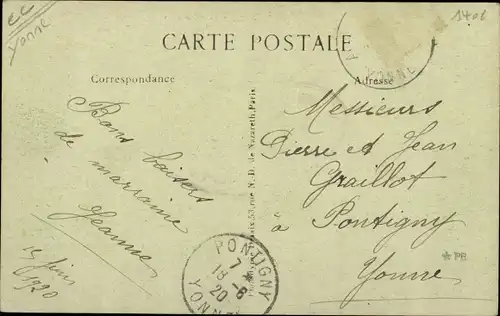 CC
Yonne
1406
CARTE POSTALE
YONNE
Correspondance
Adresse
Bons baisers
de marraine
Jeanne
15 juin
1920
Messieurs
Pierre et Jean
Graillot
à Pontigny
Yonne
53, rue N.-D. de Nazareth, Paris
PONTIGNY
7
20
YONNE
PB